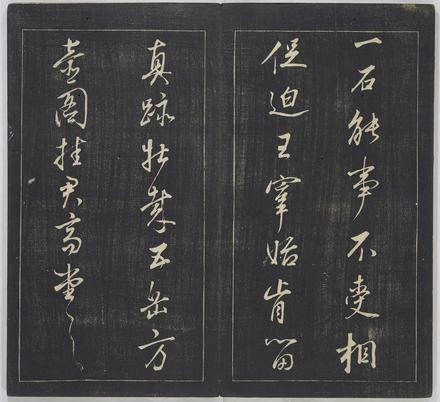 一石能事不受相
促迫王宰始肯留
真跡壯哉五岳方
壺圖挂君高堂之